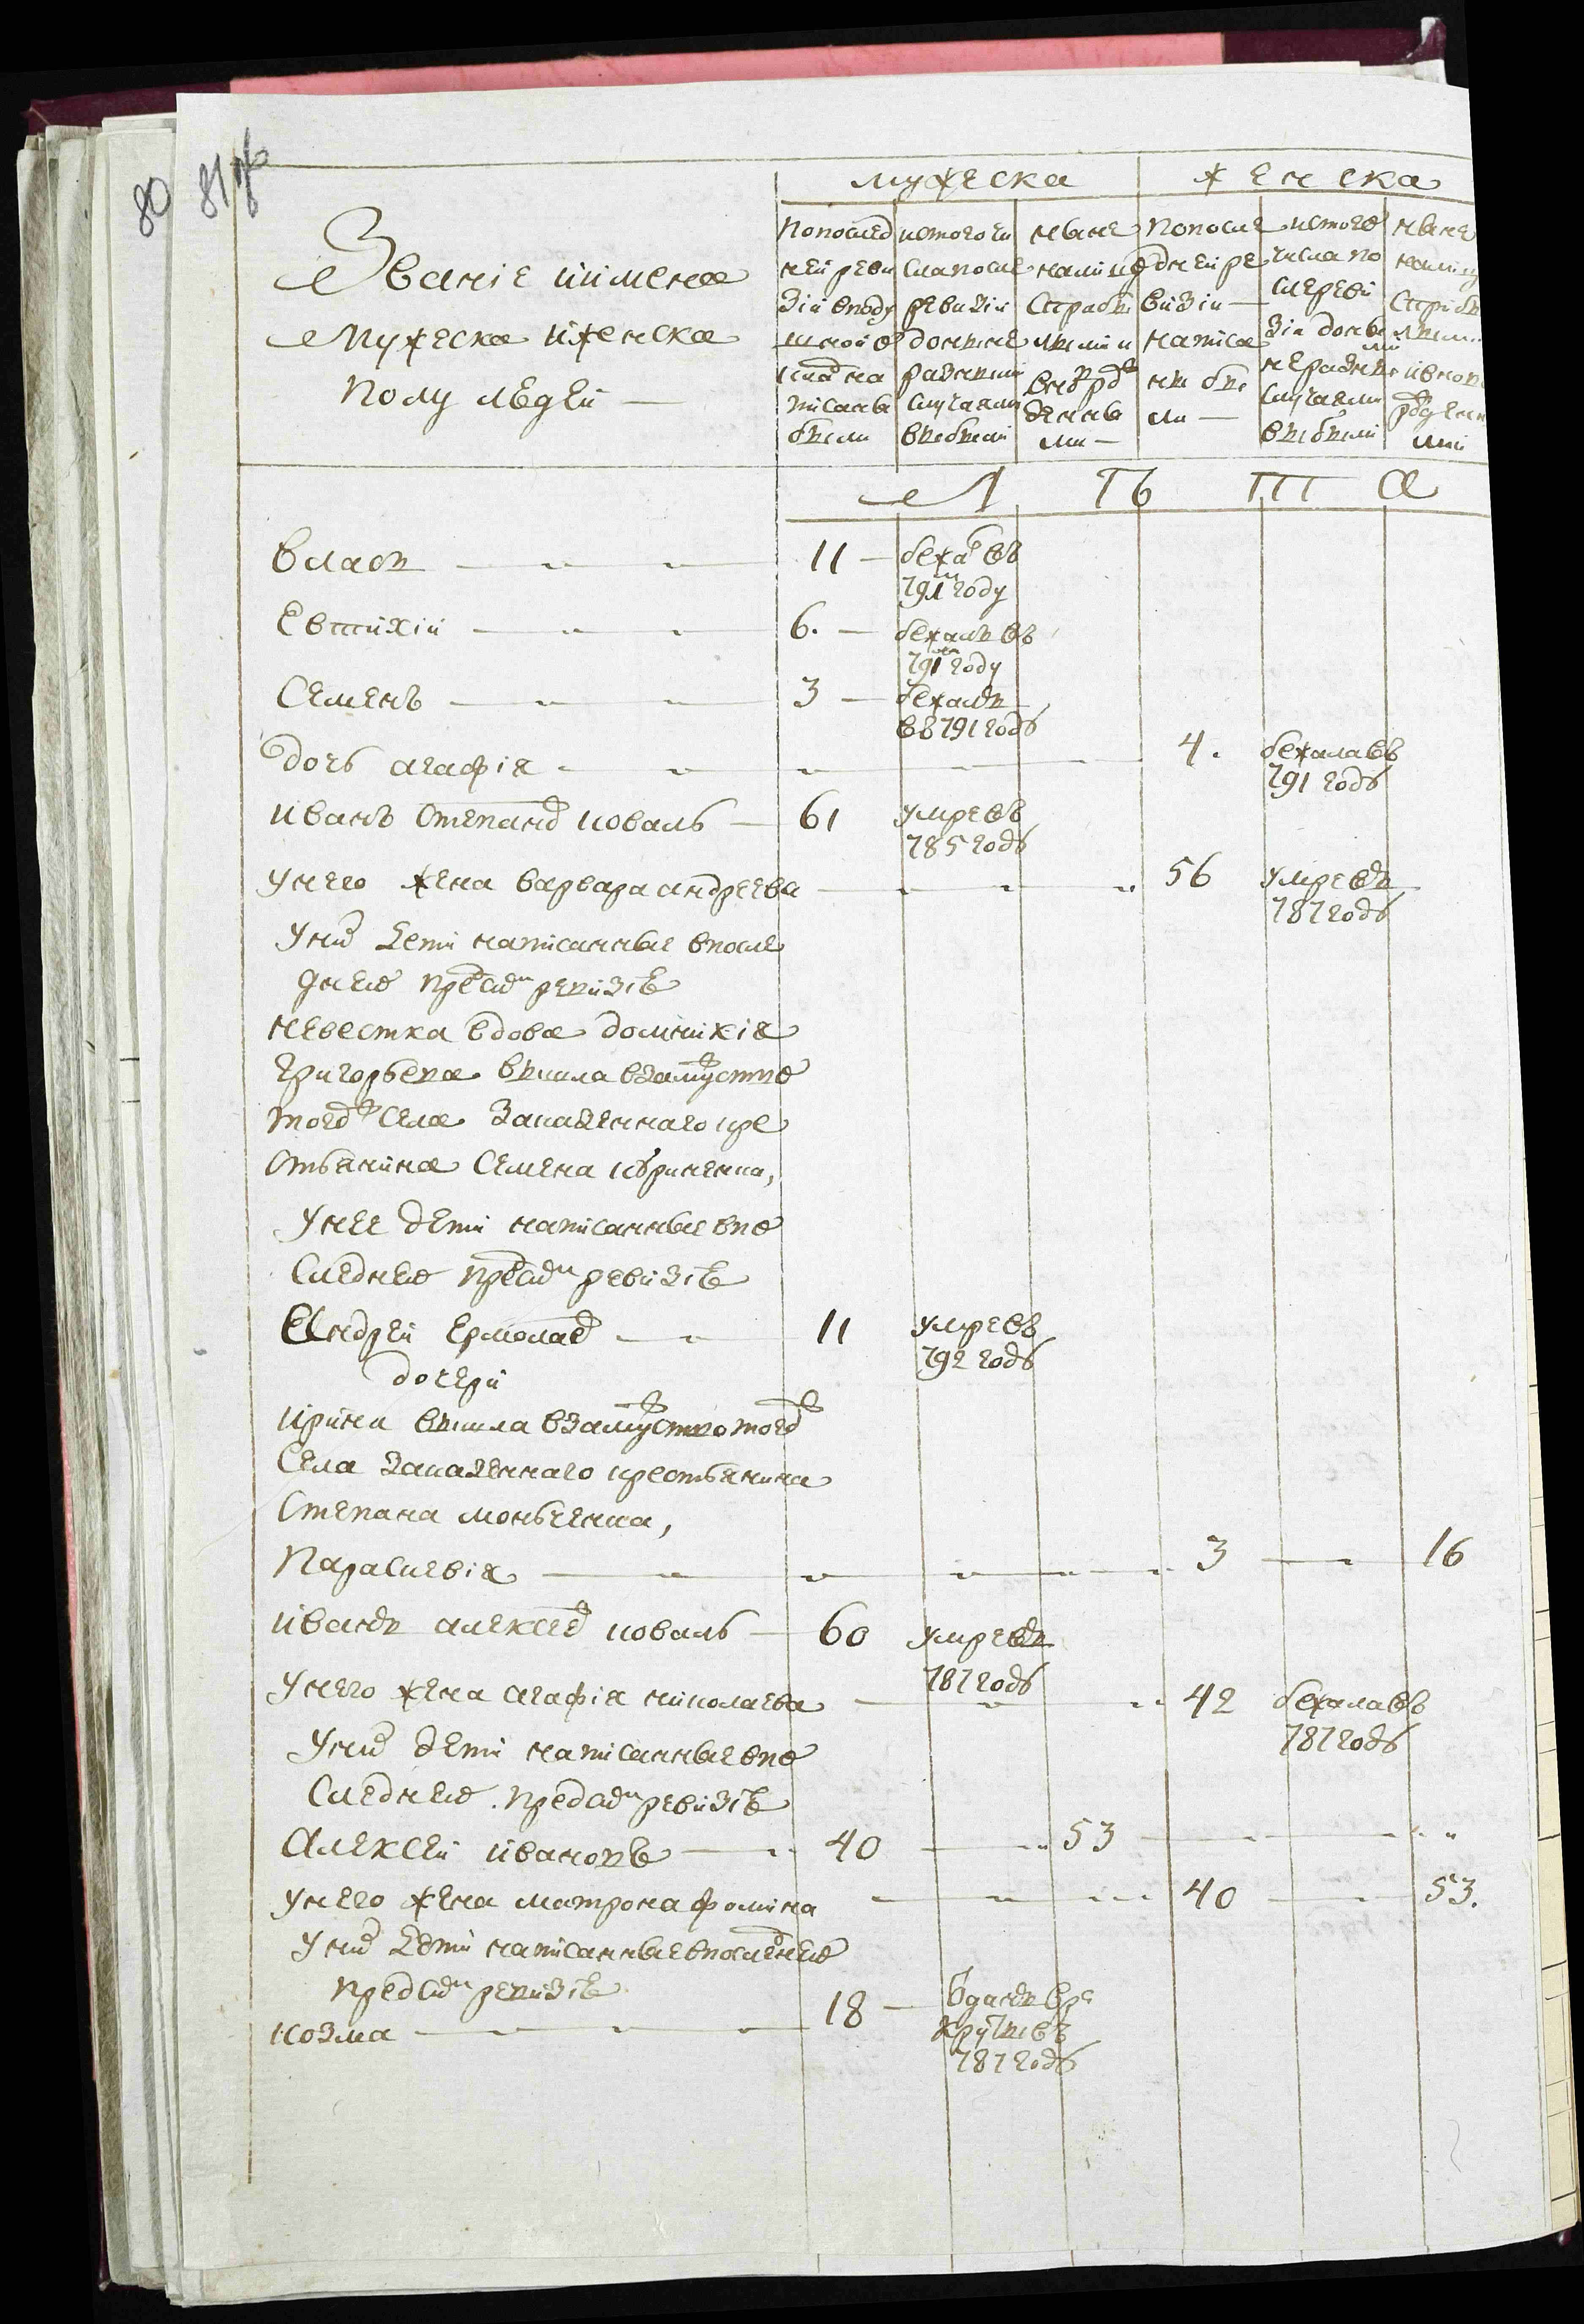 80
81
мужеска женска
Званіе иимена
Мужеска иженска
полу людей —
попослед
ней реви
зіи вподу
шной о
клад на
писаны
были
истого чи
сла после
ревизіи
донине
разными
случаями
выбыли
ныне
налицо
Старыми
вновь рож
денны
ми —
Попосле
дней ре
визіи —
написа
ны бы
ли —
истого
числа по
сле реви
зіи доны
не разными
случаями
выбыли
ныне
налицо
Стары
ми
ивновь
рожденны
ми
Л Ѣ Т А
Власъ — 11 — бежалъ въ
791м году
Евтихій — 6. — бежалъ въ
791м году
Семенъ — 3 — бежалъ
въ 791 годѣ
дочь агафія — 4. бежала въ
791 годѣ
иванъ Степановъ коваль — 61 умре въ
785 годѣ
унего жена варвара андреева — 56 умре въ
787 годѣ
Уних дети написанные впосле
днею пред сим ревизіею
невестка вдова домникія
григорьева вышла взамужство
тогож Села Заказеннаго кре
стьянина Семена
Унее дети написанные впо
следнею пред сим ревизіею
Андрей Ермолаев — 11 умре въ
792 годѣ
дочери
ирина вышла взамужство тогож
Села заказеннаго крестьянина
Степана
Параскевія — 3 — 16
иванъ алексеев коваль — 60 умре въ
787 годѣ
Унего жена агафія николаева — 42 бежала въ
787 годѣ
Уних дети написанные впо
следнею пред сим ревизіею
Алексей ивановъ — 40 — 53
унего жена матрона фомина — 40 — 53.
Уних дети написанные впоследнею
пред сим ревизіею
козма — 18 — Отданъ вре
круты въ
787 годѣ